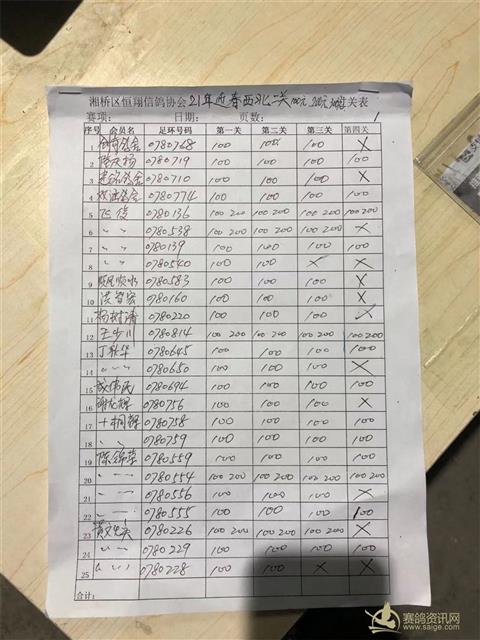 湘桥区恒翔信鸽协会21年迎春西北一关100元 200元 鸽关表
赛项: 日期: 页数: 1
序号 会员名 足环号码 第一关 第二关 第三关 第四关
1 鸽会 0780748 100 100 100 X
2 0780719 100 100 100 100
3 鸽会 0780710 100 100 100 X
4 鸽会 0780774 100 100 100 100
5 飞俊 0780136 100 200 100 200 100 200 100 200
6 〃 〃 0780538 100 200 100 200 100 200 X
7 〃 〃 0780139 100 100 100 100
8 〃 〃 0780540 100 100 X X
9 顺风顺水 0780583 100 100 100 X
10 洪智宏 0780160 100 100 100 X
11 杨树清 0780220 100 100 100 X
12 王少川 0780814 100 200 100 200 100 200 100 200
13 丁秋华 0780645 100 100 100 100
14 〃 〃 0780650 100 100 100 X
15 成伟民 0780694 100 100 100 100
16 谢龙辉 0780756 100 100 100 X
17 十相辉 0780758 100 100 100 100
18 〃 〃 0780759 100 100 100 100
19 陈锦荣 0780559 100 100 100 100
20 〃 〃 0780554 100 200 100 200 100 200 100 200
21 〃 〃 0780556 100 100 100 X
22 〃 〃 0780555 100 100 100 100
23 0780226 100 200 100 200 100 200 X
24 〃 〃 0780229 100 100 100 100
25 〃 〃 0780228 100 100 X X
合计:
赛鸽资讯网
www.saige.com